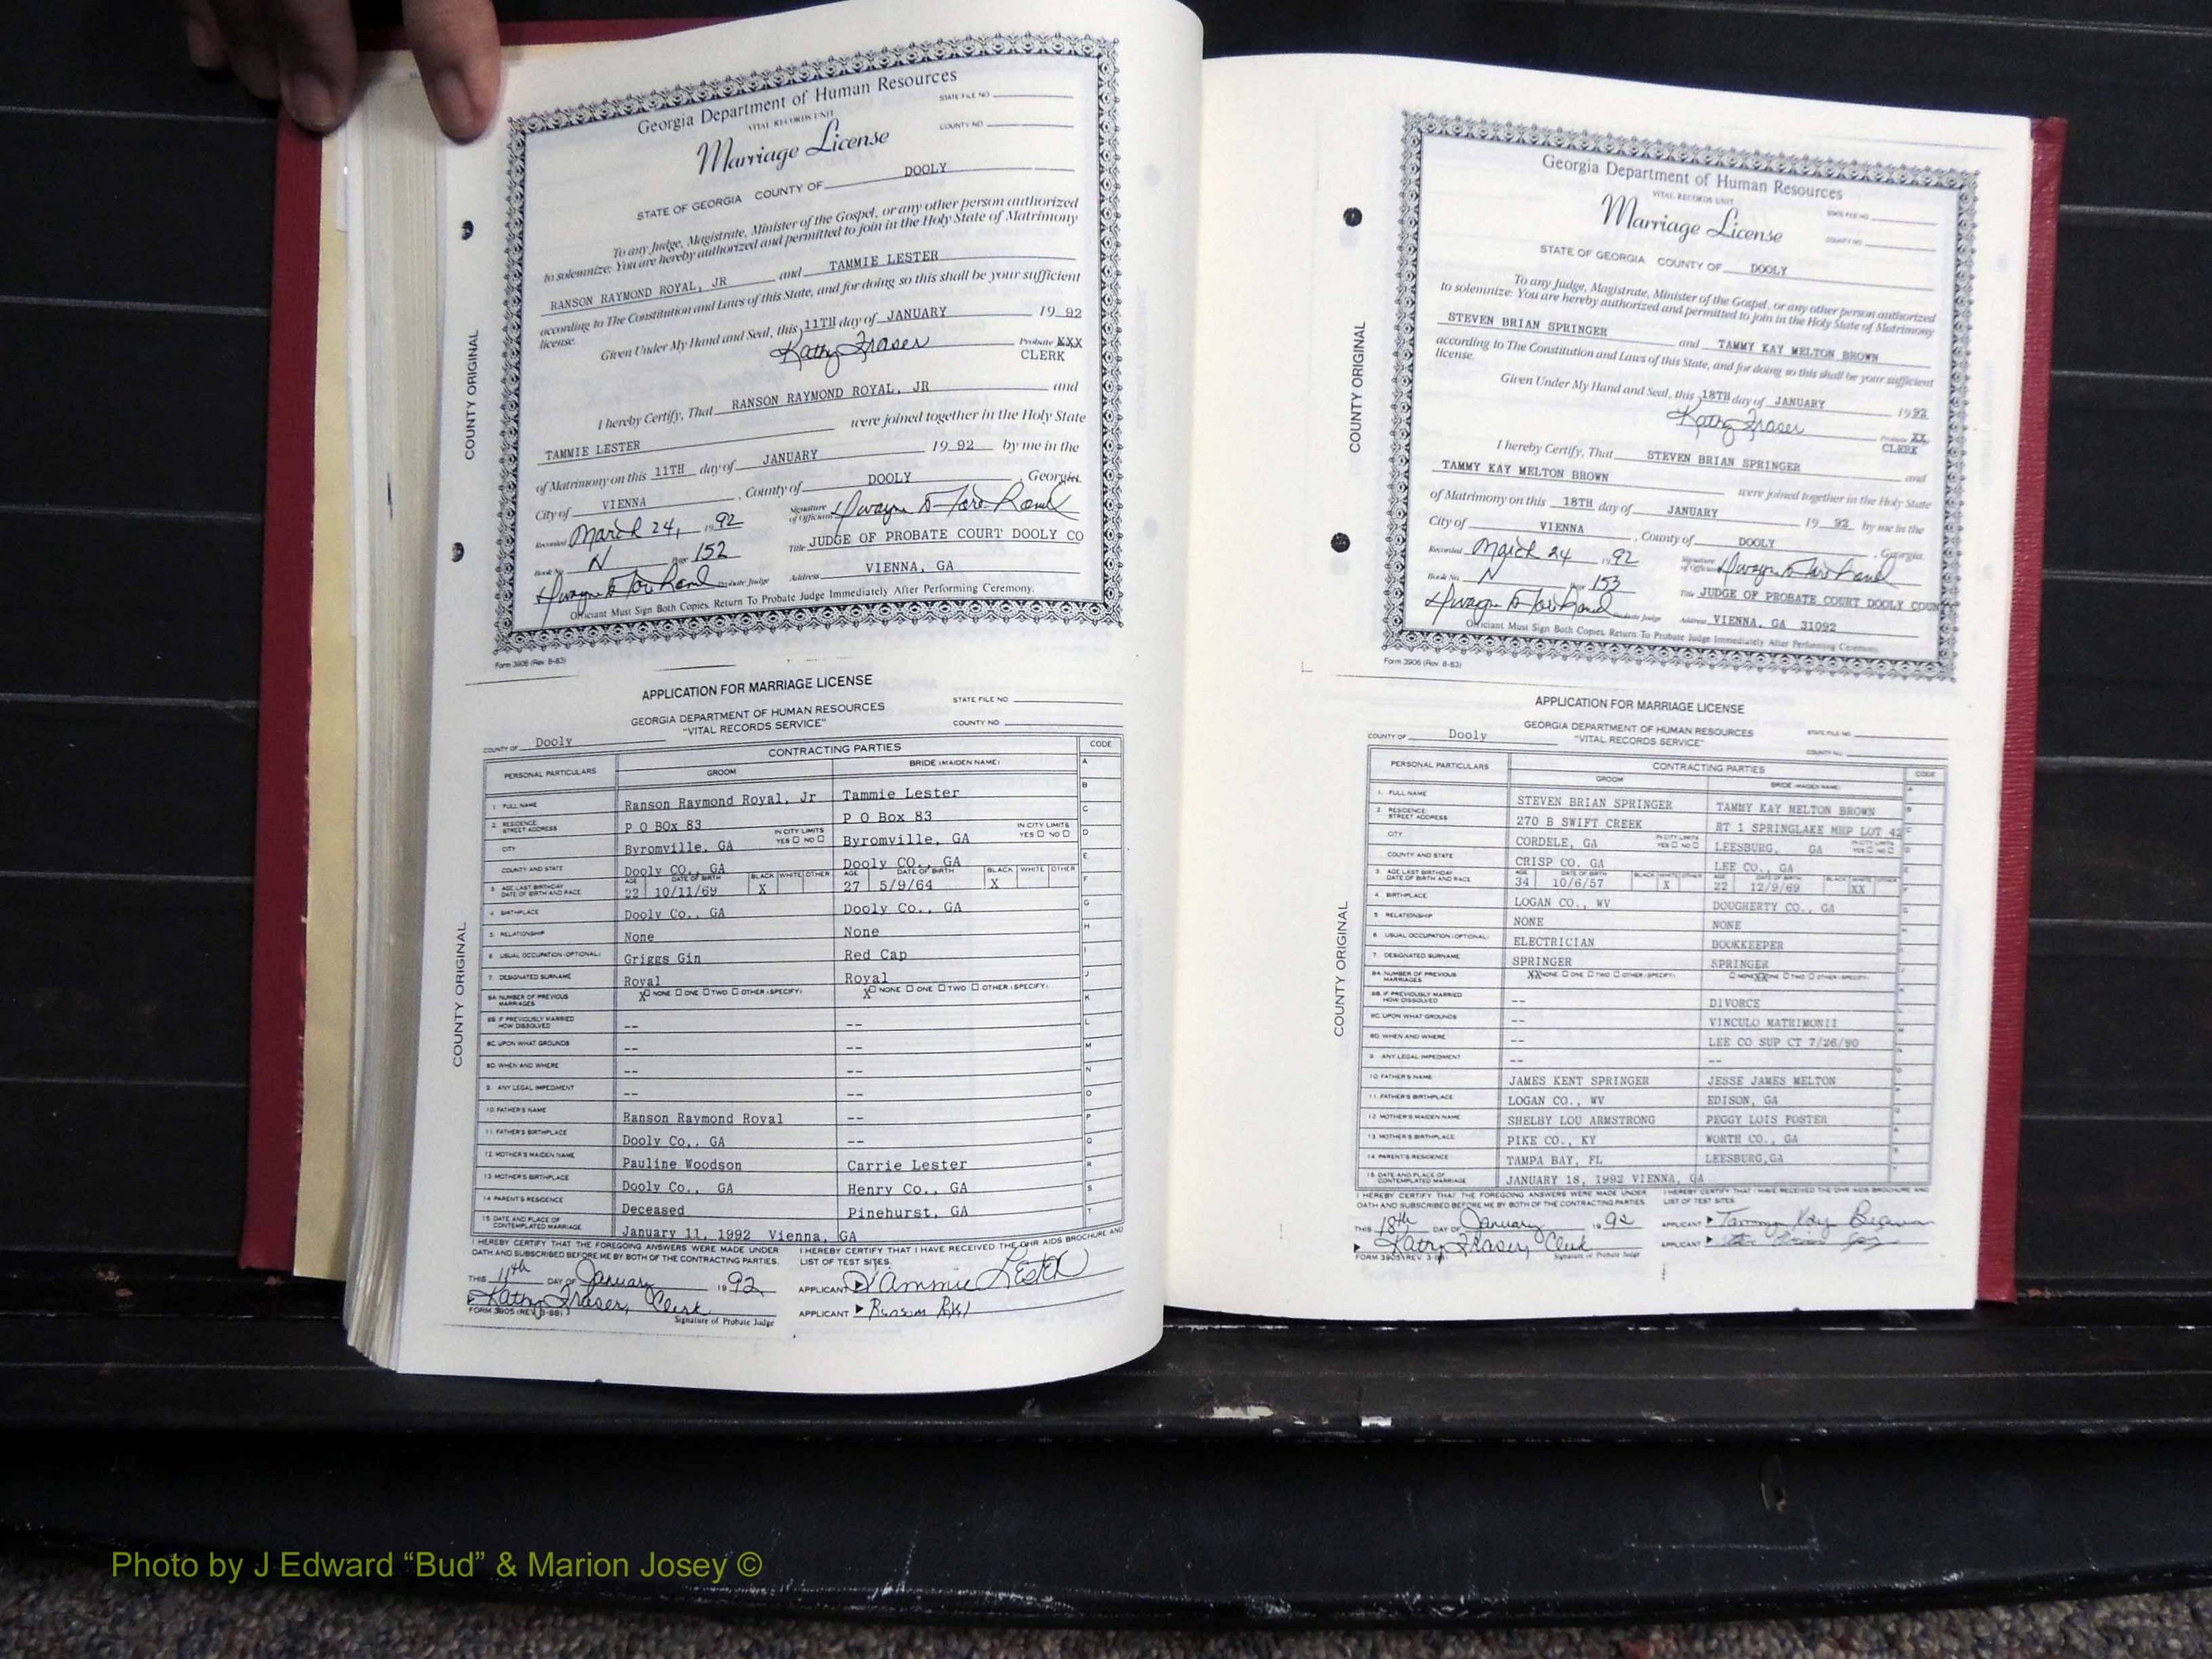 Georgia Department of Human Resources
VITAL RECORDS UNIT
STATE FILE NO.
COUNTY NO.
Marriage License
STATE OF GEORGIA COUNTY OF DOOLY
To any Judge, Magistrate, Minister of the Gospel, or any other person authorized
to solemnize: You are hereby authorized and permitted to join in the Holy State of Matrimony
RANSON RAYMOND ROYAL, JR and TAMMIE LESTER
according to The Constitution and Laws of this State, and for doing so this shall be your sufficient
license.
Given Under My Hand and Seal, this 11TH day of JANUARY 19 92
Kathy Fraser Probate XXX
CLERK
I hereby Certify, That RANSON RAYMOND ROYAL, JR and
TAMMIE LESTER were joined together in the Holy State
of Matrimony on this 11TH day of JANUARY 19 92 by me in the
City of VIENNA, County of DOOLY Georgia.
Recorded March 24, 1992 Signature of Officiant
Book No. N Page 152 Title JUDGE OF PROBATE COURT DOOLY CO
Probate Judge Address VIENNA, GA
Officiant Must Sign Both Copies. Return To Probate Judge Immediately After Performing Ceremony.
Form 3906 (Rev. 8-83)
COUNTY ORIGINAL
APPLICATION FOR MARRIAGE LICENSE
GEORGIA DEPARTMENT OF HUMAN RESOURCES
"VITAL RECORDS SERVICE"
STATE FILE NO
COUNTY NO.
COUNTY OF Dooly
PERSONAL PARTICULARS CONTRACTING PARTIES CODE
GROOM BRIDE (MAIDEN NAME)
1. FULL NAME Ranson Raymond Royal, Jr Tammie Lester
2. RESIDENCE STREET ADDRESS P O BOx 83 P O Box 83
CITY Byromville, GA IN CITY LIMITS YES NO Byromville, GA IN CITY LIMITS YES NO
COUNTY AND STATE Dooly CO., GA Dooly CO., GA
3. AGE LAST BIRTHDAY DATE OF BIRTH AND RACE AGE 22 DATE OF BIRTH 10/11/69 BLACK X WHITE OTHER AGE 27 DATE OF BIRTH 5/9/64 BLACK X WHITE OTHER
4. BIRTHPLACE Dooly Co., GA Dooly Co., GA
5. RELATIONSHIP None None
6. USUAL OCCUPATION (OPTIONAL) Griggs Gin Red Cap
7. DESIGNATED SURNAME Royal Royal
8A. NUMBER OF PREVIOUS MARRIAGES X NONE ONE TWO OTHER (SPECIFY) X NONE ONE TWO OTHER (SPECIFY)
8B. IF PREVIOUSLY MARRIED HOW DISSOLVED -- --
8C. UPON WHAT GROUNDS -- --
8D. WHEN AND WHERE -- --
9. ANY LEGAL IMPEDIMENT -- --
10. FATHER'S NAME Ranson Raymond Royal --
11. FATHER'S BIRTHPLACE Dooly Co., GA --
12. MOTHER'S MAIDEN NAME Pauline Woodson Carrie Lester
13. MOTHER'S BIRTHPLACE Dooly Co., GA Henry Co., GA
14. PARENT'S RESIDENCE Deceased Pinehurst, GA
15. DATE AND PLACE OF CONTEMPLATED MARRIAGE January 11, 1992 Vienna, GA
I HEREBY CERTIFY THAT THE FOREGOING ANSWERS WERE MADE UNDER
OATH AND SUBSCRIBED BEFORE ME BY BOTH OF THE CONTRACTING PARTIES.
I HEREBY CERTIFY THAT I HAVE RECEIVED THE DHR AIDS BROCHURE AND
LIST OF TEST SITES.
THIS 11th DAY OF January 1992 APPLICANT Tammie Lester
Kathy Fraser, Clerk APPLICANT
FORM 3905 (REV. 3-88) Signature of Probate Judge
COUNTY ORIGINAL
Georgia Department of Human Resources
VITAL RECORDS UNIT
STATE FILE NO.
COUNTY NO.
Marriage License
STATE OF GEORGIA COUNTY OF DOOLY
To any Judge, Magistrate, Minister of the Gospel, or any other person authorized
to solemnize: You are hereby authorized and permitted to join in the Holy State of Matrimony
STEVEN BRIAN SPRINGER and TAMMY KAY MELTON BROWN
according to The Constitution and Laws of this State, and for doing so this shall be your sufficient
license.
Given Under My Hand and Seal, this 18TH day of JANUARY 1992
Kathy Fraser Probate XX
CLERK
I hereby Certify, That STEVEN BRIAN SPRINGER and
TAMMY KAY MELTON BROWN were joined together in the Holy State
of Matrimony on this 18TH day of JANUARY 19 92 by me in the
City of VIENNA, County of DOOLY, Georgia.
Recorded March 24 1992 Signature of Officiant
Book No. N Page 153 Title JUDGE OF PROBATE COURT DOOLY COUN
Probate Judge Address VIENNA, GA 31092
Officiant Must Sign Both Copies. Return To Probate Judge Immediately After Performing Ceremony.
Form 3906 (Rev. 8-83)
COUNTY ORIGINAL
APPLICATION FOR MARRIAGE LICENSE
GEORGIA DEPARTMENT OF HUMAN RESOURCES
"VITAL RECORDS SERVICE"
STATE FILE NO.
COUNTY NO.
COUNTY OF Dooly
PERSONAL PARTICULARS CONTRACTING PARTIES CODE
GROOM BRIDE (MAIDEN NAME)
1. FULL NAME STEVEN BRIAN SPRINGER TAMMY KAY MELTON BROWN
2. RESIDENCE STREET ADDRESS 270 B SWIFT CREEK RT 1 SPRINGLAKE MHP LOT 42
CITY CORDELE, GA IN CITY LIMITS YES NO LEESBURG, GA IN CITY LIMITS YES NO
COUNTY AND STATE CRISP CO. GA LEE CO., GA
3. AGE LAST BIRTHDAY DATE OF BIRTH AND RACE AGE 34 DATE OF BIRTH 10/6/57 BLACK WHITE X OTHER AGE 22 DATE OF BIRTH 12/9/69 BLACK WHITE XX OTHER
4. BIRTHPLACE LOGAN CO., WV DOUGHERTY CO., GA
5. RELATIONSHIP NONE NONE
6. USUAL OCCUPATION (OPTIONAL) ELECTRICIAN BOOKKEEPER
7. DESIGNATED SURNAME SPRINGER SPRINGER
8A. NUMBER OF PREVIOUS MARRIAGES XX NONE ONE TWO OTHER (SPECIFY) NONE XX ONE TWO OTHER (SPECIFY)
8B. IF PREVIOUSLY MARRIED HOW DISSOLVED -- DIVORCE
8C. UPON WHAT GROUNDS -- VINCULO MATRIMONII
8D. WHEN AND WHERE -- LEE CO SUP CT 7/26/90
9. ANY LEGAL IMPEDIMENT -- --
10. FATHER'S NAME JAMES KENT SPRINGER JESSE JAMES MELTON
11. FATHER'S BIRTHPLACE LOGAN CO., WV EDISON, GA
12. MOTHER'S MAIDEN NAME SHELBY LOU ARMSTRONG PEGGY LOIS FOSTER
13. MOTHER'S BIRTHPLACE PIKE CO., KY WORTH CO., GA
14. PARENT'S RESIDENCE TAMPA BAY, FL LEESBURG,GA
15. DATE AND PLACE OF CONTEMPLATED MARRIAGE JANUARY 18, 1992 VIENNA, GA
I HEREBY CERTIFY THAT THE FOREGOING ANSWERS WERE MADE UNDER
OATH AND SUBSCRIBED BEFORE ME BY BOTH OF THE CONTRACTING PARTIES.
I HEREBY CERTIFY THAT I HAVE RECEIVED THE DHR AIDS BROCHURE AND
LIST OF TEST SITES
THIS 18th DAY OF January 1992 APPLICANT Tammy Kay Brown
Kathy Fraser, Clerk APPLICANT
FORM 3905 (REV. 3-88) Signature of Probate Judge
COUNTY ORIGINAL
Photo by J Edward “Bud” & Marion Josey ©